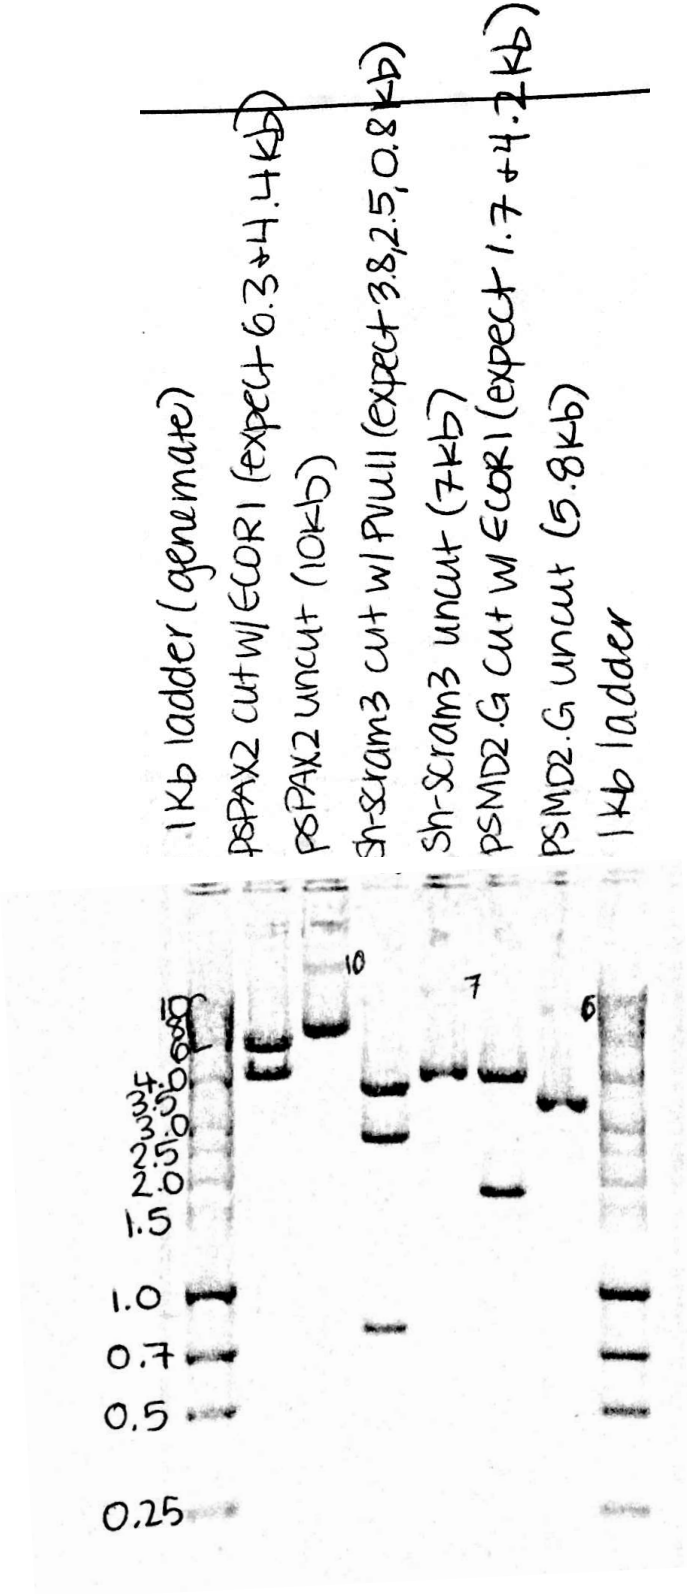 1Kb ladder (genemate)
pSPAX2 cut w/ ECORI (expect 6.3+4.4kb)
pSPAX2 uncut (10kb)
Sh-scram3 cut w/ PVUII (expect 3.8, 2.5, 0.8 kb)
Sh-scram3 uncut (7kb)
PSMD2.G cut w/ ECORI (expect 1.7 + 4.2 kb)
PSMD2.G uncut (5.8kb)
1kb ladder
10
7
6
10
8
6
4.0
3.5
3.0
2.5
2.0
1.5
1.0
0.7
0.5
0.25